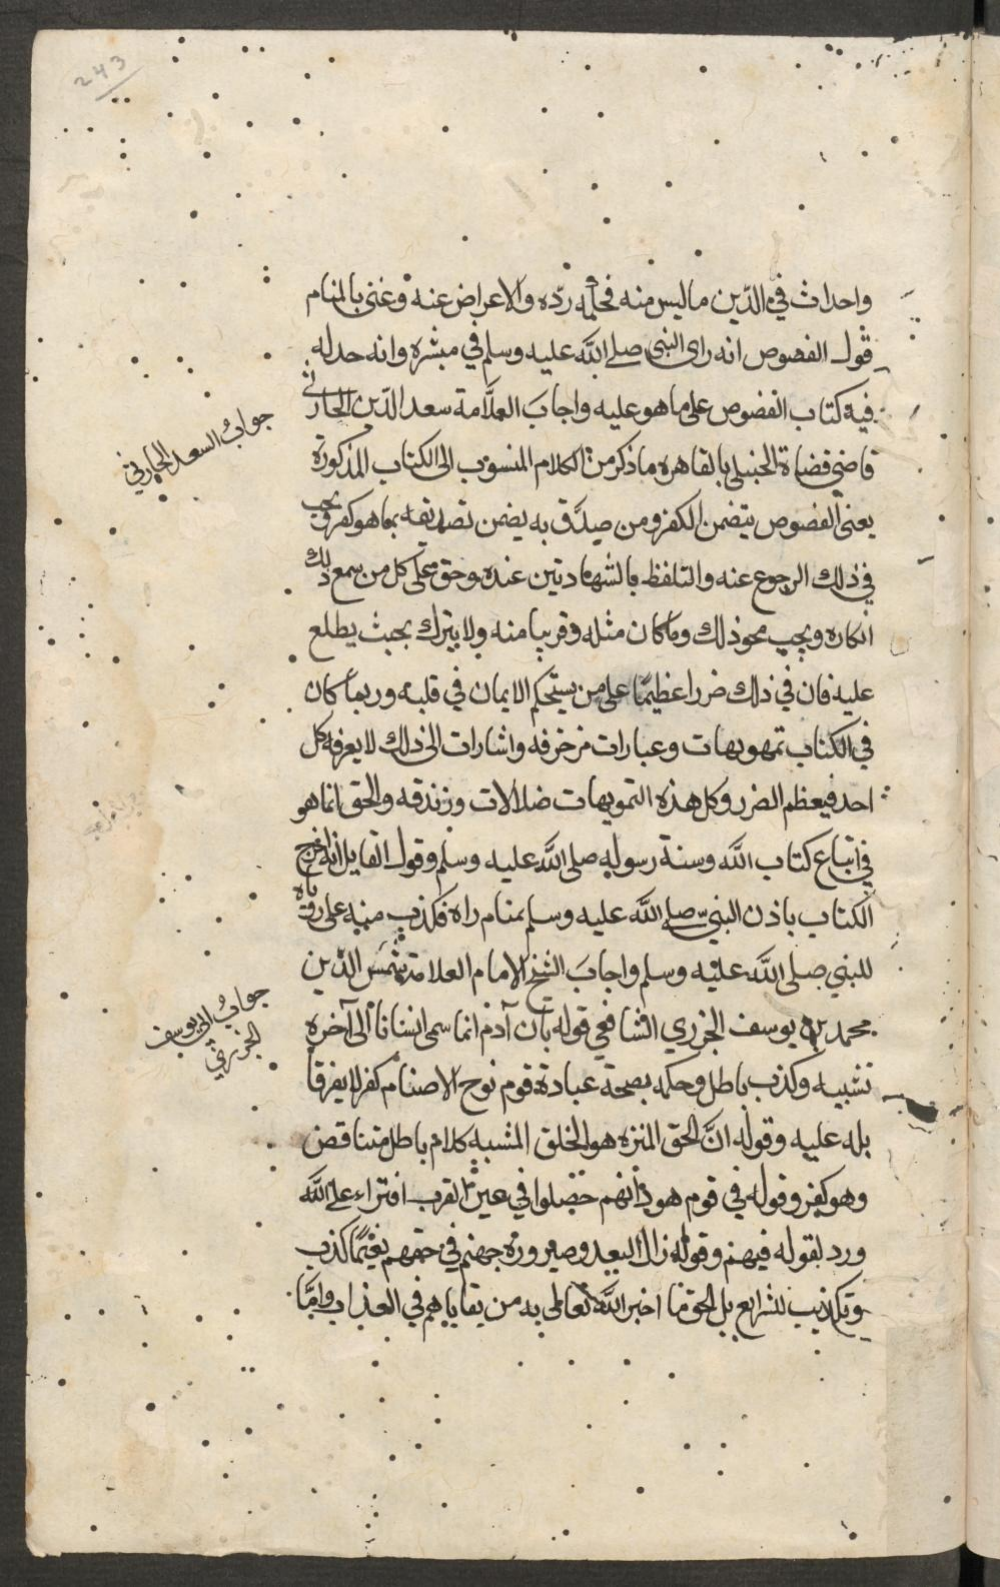 243
واحداث في الدين ما ليس منه فحكمه رده والاعراض عنه وعنى بالمنام
قول الفصوص انه راى النبى صلے الله عليه وسلم في مبشره وانه حد له
فيه كتاب الفصوص على ما هو عليه واجاب العلامة سعد الدين الحارثى
قاضى قضاة الحنبلى بالقاهره ما ذكر من الكلام المنسوب الى الكتاب المذكورة
يعنى الفصوص يتضمن الكفر ومن صدق به يضمن تصديقه بما هو كفر ويجب
في ذلك الرجوع عنه والتلفظ بالشهادتين عنده وحق على كل من سمع ذلك
انكاره ويجب محو ذلك وما كان مثله وقريبا منه ولا يترك بحيث يطلع
عليه فان في ذلك ضررا عظيما على من يستحكم الايمان في قلبه وربما كان
في الكتاب تمويهات وعبارات مزخرفه واشارات الى ذلك لا يعرفه كل
احد فيعظم الضرر وكل هذه التمويهات ضلالات وزندقه والحق انما هو
في اتباع كتاب الله وسنة رسوله صلى الله عليه وسلم وقول القايل انه اخرج
الكتاب باذن النبي صلے الله عليه وسلم بمنام راه فكذب منه على رؤياه
للنبي صلى الله عليه وسلم واجاب الشيخ الامام العلامة شمس الدين
محمد بن يوسف الجزري الشافعي قوله بان آدم انما سمى انسانا الى آخره
تشبيه وكذب باطل وحكمه بصحة عبادة قوم نوح الاصنام كفر لا يفرقا
بله عليه وقوله ان الحق المنزه هو الخلق المشبه كلام باطل متناقض
وهو كفر وقوله في قوم هود انهم حضلوا في عين القرب افتراء على الله
ورد لقوله فيهم وقوله زال البعد وصيرورة جهنم في حقهم نعيما كذب
وتكذيب للشرايع بل الحق ما اخبر الله تعالى به من بقاياهم في العذاب واما
جواب السعد الحارثي
جواب ابن يوسف
الجزري